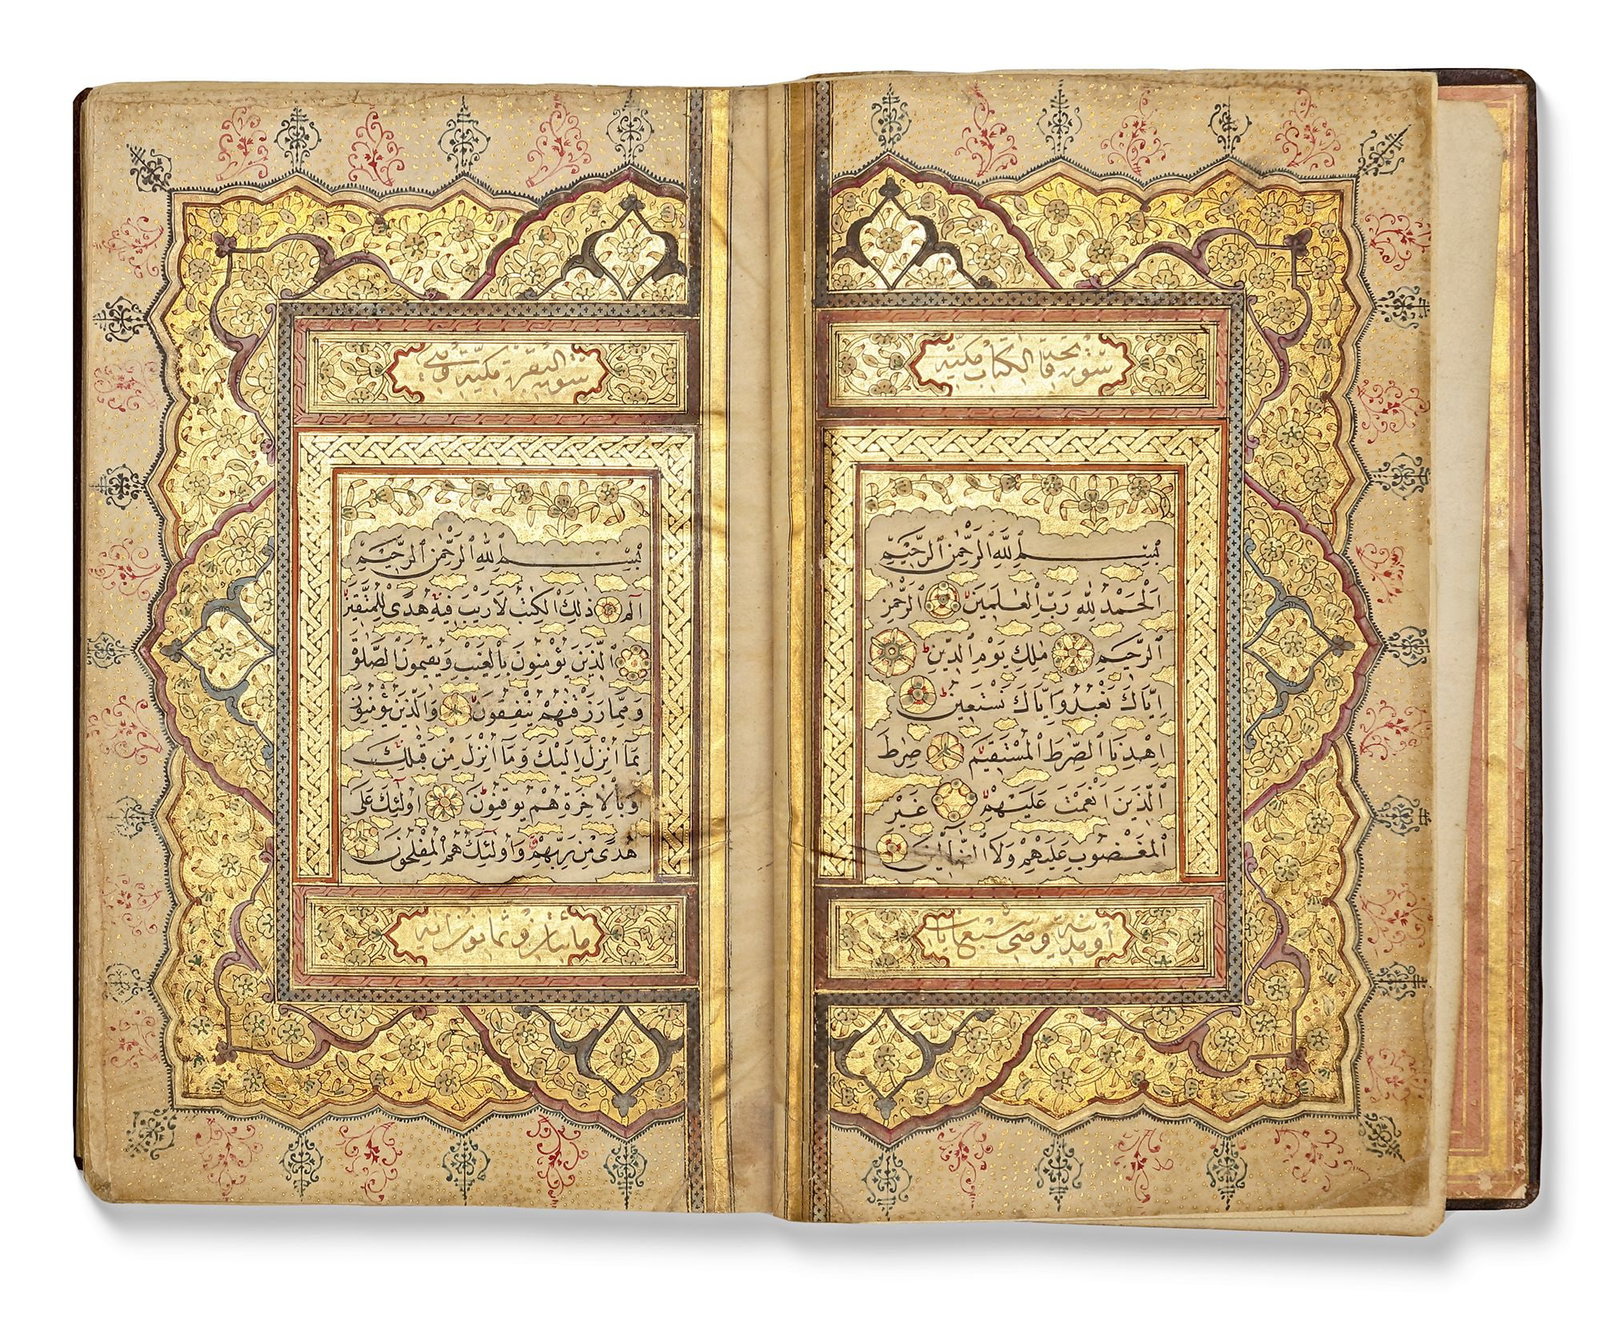 سورة فاتحة الكتاب مكية
بِسْمِ ٱللَّهِ ٱلرَّحْمٰنِ ٱلرَّحِيمِ
ٱلْحَمْدُ لِلَّهِ رَبِّ ٱلْعٰلَمِينَ ٱلرَّحْمٰنِ
ٱلرَّحِيمِ مٰلِكِ يَوْمِ ٱلدِّينِ
اِيَّاكَ نَعْبُدُ وَاِيَّاكَ نَسْتَعِينُ
اِهْدِنَا ٱلصِّرَاطَ ٱلْمُسْتَقِيمَ صِرَاطَ
ٱلَّذِينَ اَنْعَمْتَ عَلَيْهِمْ غَيْرِ
ٱلْمَغْضُوبِ عَلَيْهِمْ وَلَا ٱلضَّالِّينَ
او مدنية وهي سبع ايات
سورة البقرة مكية وهي
بِسْمِ ٱللَّهِ ٱلرَّحْمٰنِ ٱلرَّحِيمِ
الم ذٰلِكَ ٱلْكِتٰبُ لَا رَيْبَ فِيهِ هُدًى لِلْمُتَّقِينَ
ٱلَّذِينَ يُؤْمِنُونَ بِالْغَيْبِ وَيُقِيمُونَ ٱلصَّلٰوةَ
وَمِمَّا رَزَقْنٰهُمْ يُنْفِقُونَ وَٱلَّذِينَ يُؤْمِنُونَ
بِمَا اُنْزِلَ اِلَيْكَ وَمَا اُنْزِلَ مِنْ قَبْلِكَ
وَبِالْاٰخِرَةِ هُمْ يُوقِنُونَ اُولٰئِكَ عَلٰى
هُدًى مِنْ رَبِّهِمْ وَاُولٰئِكَ هُمُ ٱلْمُفْلِحُونَ
مائتان وثمانون اية